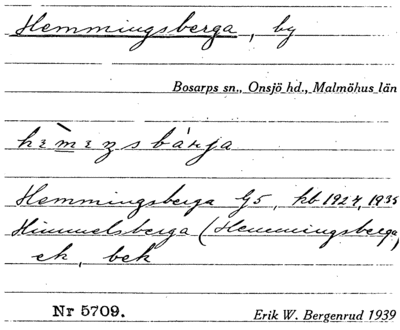 Hemmingsberga, by
Bosarps sn., Onsjö hd., Malmöhus län
Hemmingsberga G5, hb 1927, 1935
Himmelsberga (Hemmingsberga)
ek, bek
Nr 5709. Erik W. Bergenrud 1939